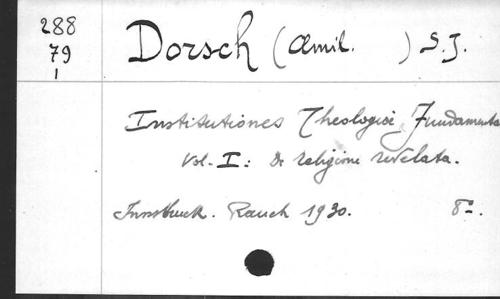 288
79
1
Dorsch (Æmil. ) S.J.
Institutiones Theologiæ Fundamenta
Vol. I: De religione revelata.
Innsbruck. Rauch 1930. 8º.